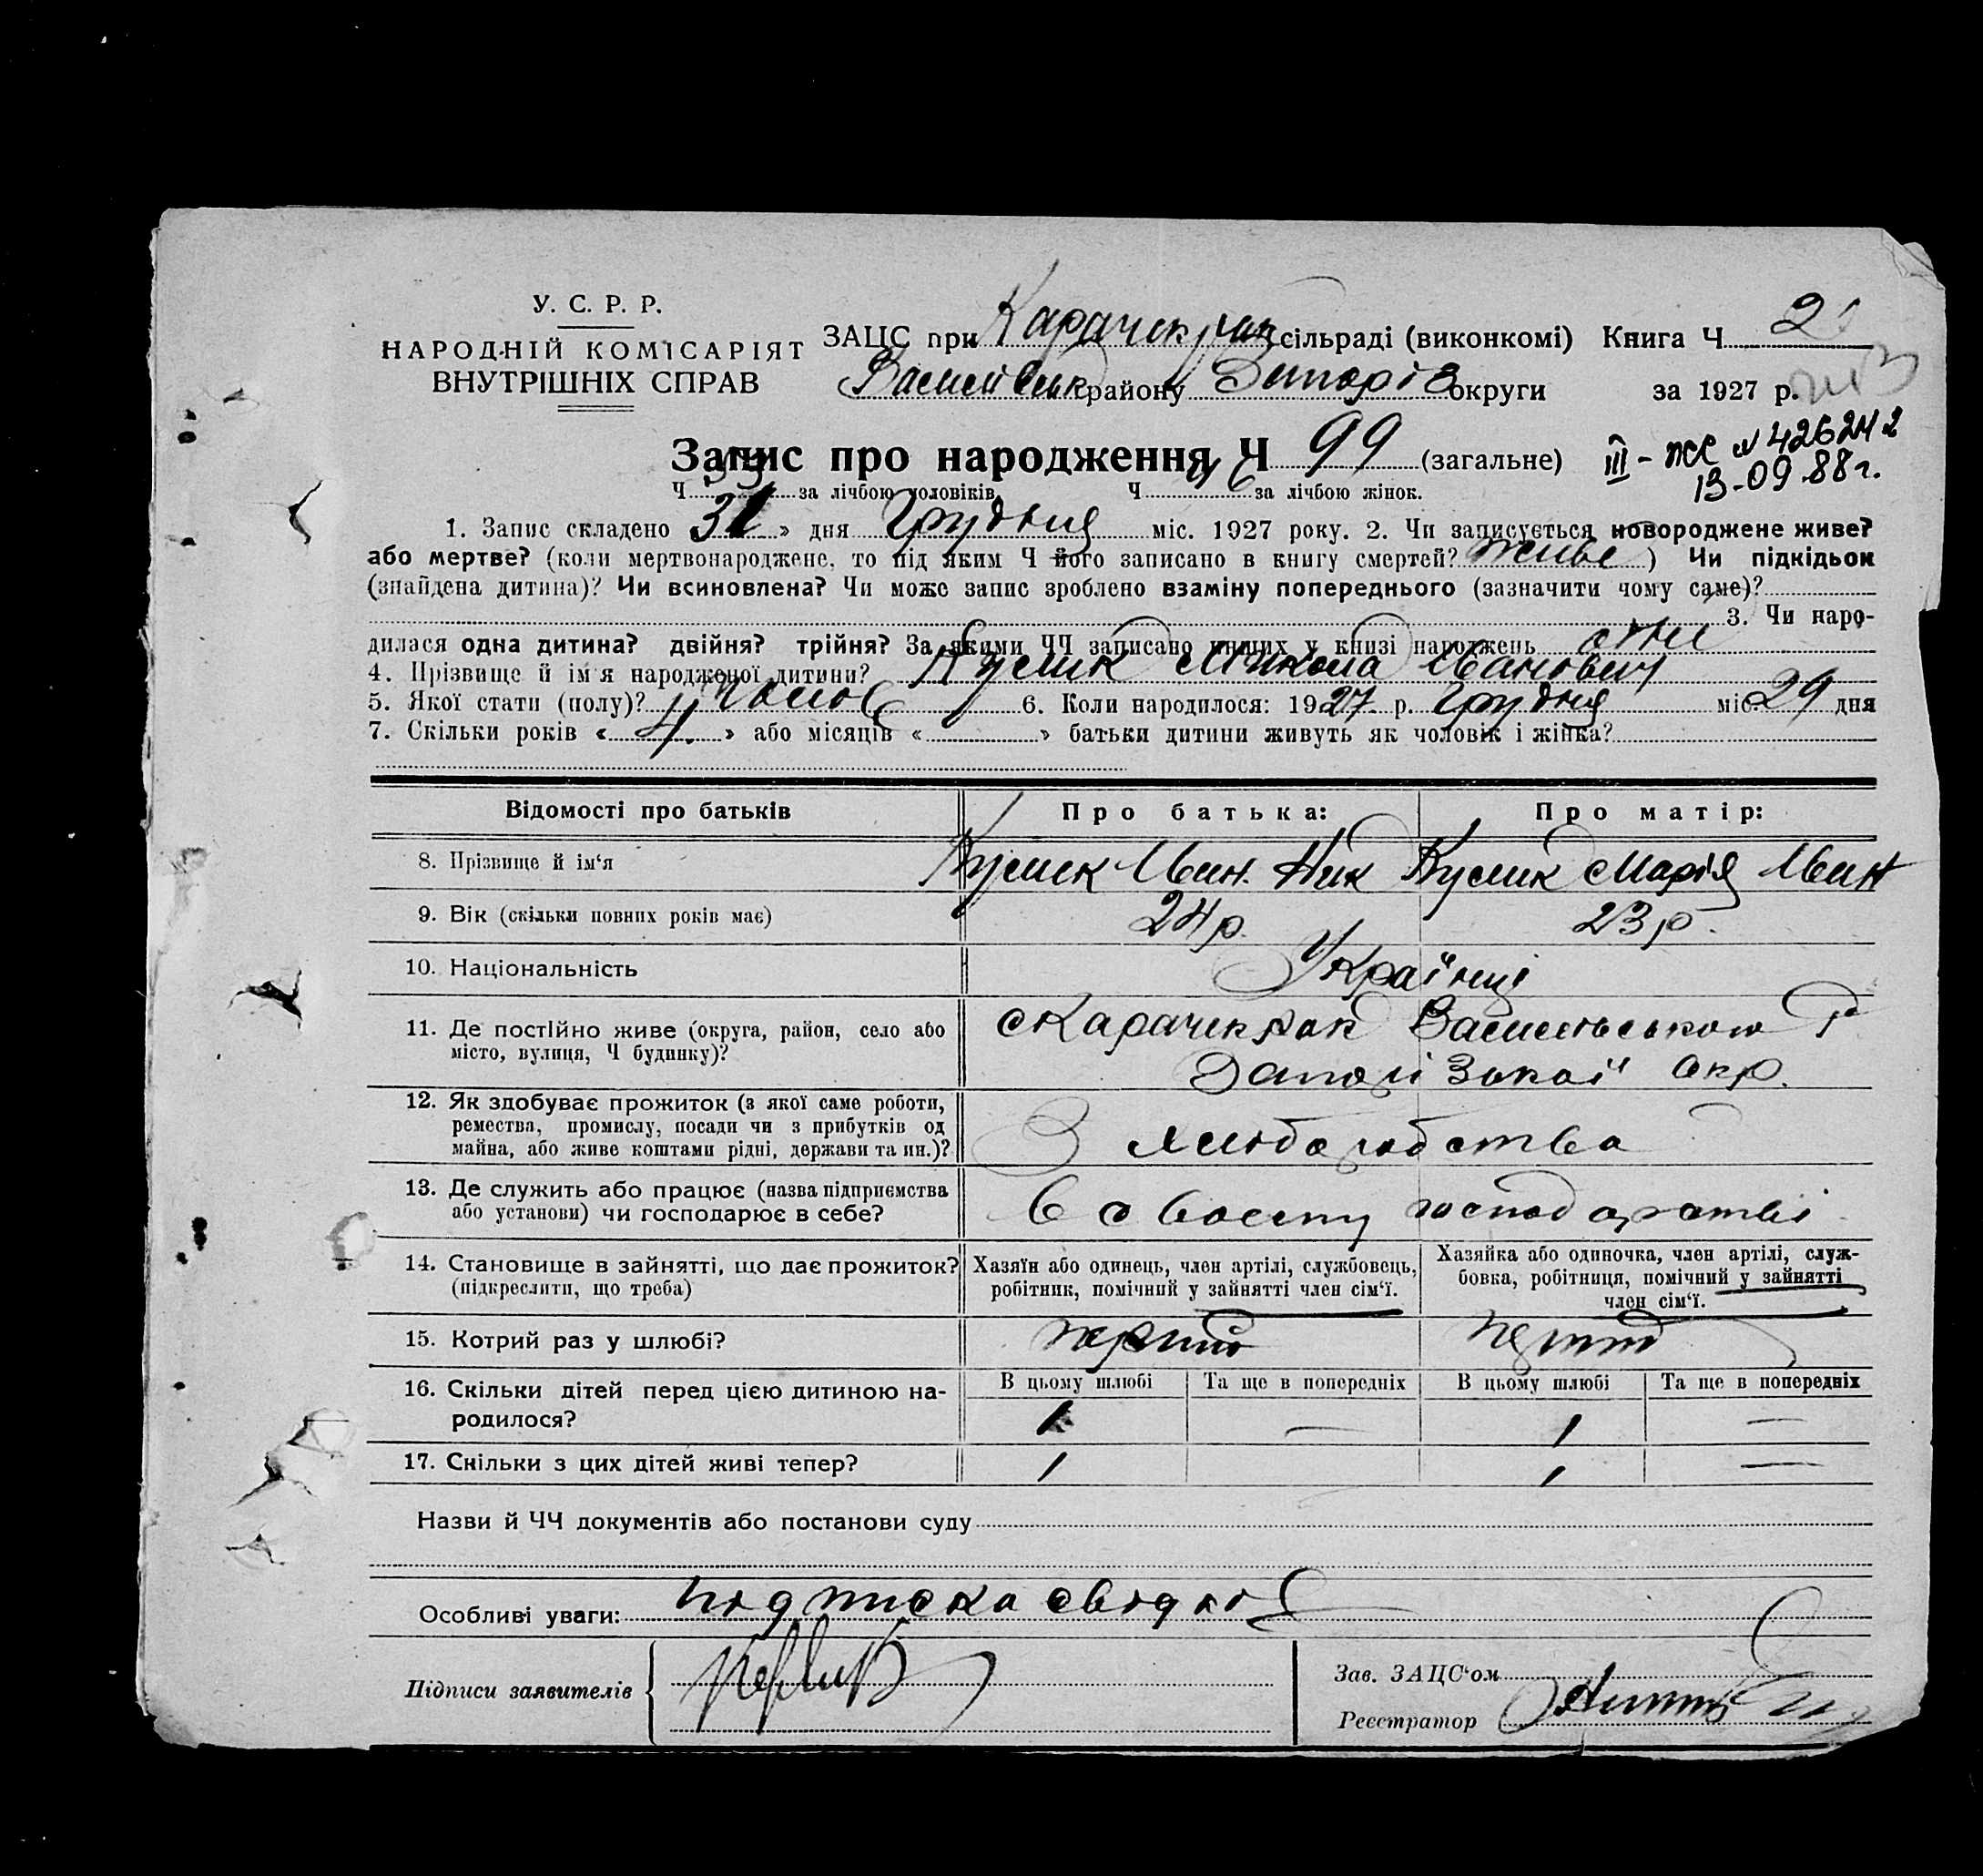 У. С. Р. Р.
НАРОДНІЙ КОМІСАРІЯТ
ВНУТРІШНІХ СПРАВ
ЗАЦС при Карачекрак сільраді (виконкомі) Книга Ч 2
Василівськ району Запоріз округи за 1927 р.
Запис про народження Ч 99 (загальне)
III - № 426242
13-09.88г.
Ч 53 за лічбою чоловіків. Ч 46 за лічбою жінок.
1. Запис складено 31 » дня Грудня міс. 1927 року. 2. Чи записується новороджене живе?
або мертве? (коли мертвонароджене, то під яким Ч його записано в книгу смертей? живе ) Чи підкідьок
(знайдена дитина)? Чи всиновлена? Чи може запис зроблено взаміну попереднього (зазначити чому саме)?
3. Чи наро-
дилася одна дитина? двійня? трійня? За якими ЧЧ записано инших у книзі народжень
4. Прізвище й ім'я народженої дитини? Кулик Микола Іванович
5. Якої стати (полу)? Чолов 6. Коли народилося: 1927 р. Грудня міс. 29 дня
7. Скільки років « 4. » або місяців « » батьки дитини живуть як чоловік і жінка?
Відомості про батьків Про батька: Про матір:
8. Прізвище й ім'я Кулик Иван. Ник Кулик Марія Иван
9. Вік (скільки повних років має) 24 р. 23 р.
10. Національність Українці
11. Де постійно живе (округа, район, село або
місто, вулиця, Ч будинку)?
с Карачекрак Василівського Р
Запорізької окр.
12. Як здобуває прожиток (з якої саме роботи,
ремества, промислу, посади чи з прибутків од
майна, або живе коштами рідні, держави та ин.)?
З хліборобства
13. Де служить або працює (назва підприємства
або установи) чи господарює в себе?
в своему господарстві
14. Становище в зайнятті, що дає прожиток?
(підкреслити, що треба)
Хазяїн або одинець, член артілі, службовець,
робітник, помічний у зайнятті член сім'ї.
Хазяйка або одиночка, член артілі, служ-
бовка, робітниця, помічний у зайнятті
член сім'ї.
15. Котрий раз у шлюбі?
16. Скільки дітей перед цією дитиною на-
родилося?
В цьому шлюбі Та ще в попередніх В цьому шлюбі Та ще в попередніх
1 — 1 —
17. Скільки з цих дітей живі тепер? 1 1 —
Назви й ЧЧ документів або постанови суду
Особливі уваги: підписка свідків
Підписи заявителів
Зав. ЗАЦС'ом
Реєстратор